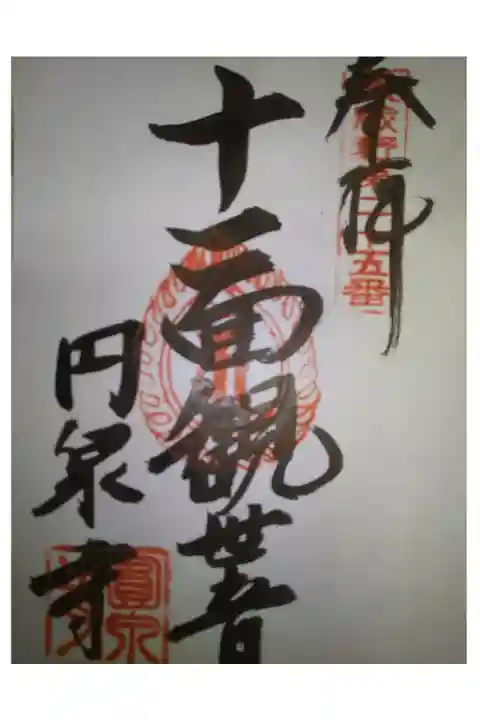 奉拝
武蔵野第二十五番
十一面観世音
円泉寺
圓泉